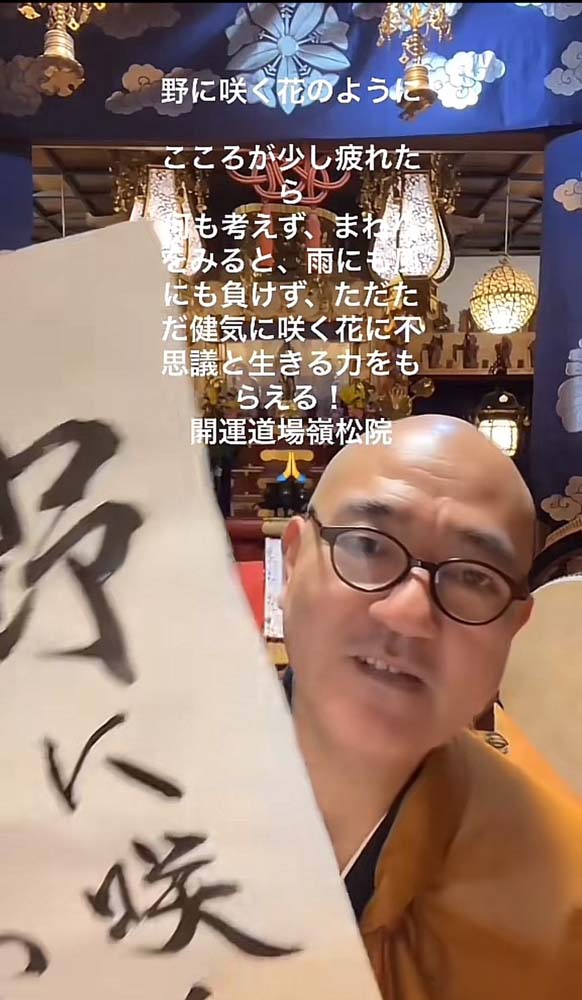 野に咲く花のように
こころが少し疲れた
ら
何も考えず、まわり
をみると、雨にも風
にも負けず、ただた
だ健気に咲く花に不
思議と生きる力をも
らえる！
開運道場嶺松院
🙏
野に咲